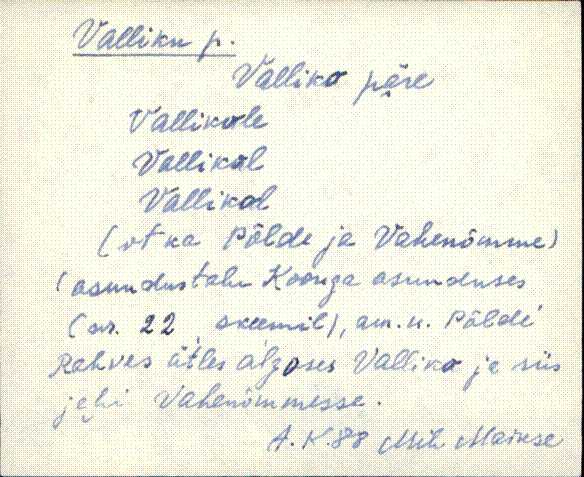 Valliku p.
Valliko pęre
Vallikole
Vallikol
Vallikol
(vt ka Põlde ja Vahenõmme)
(asundustalu Koonga asunduses
(nr. 22 skeemil), am. n. Põlde
Rahvas ütles algoses Valliko ja siis
jehi Vahenõmmesse.
A. K. 88 Mih Mainse